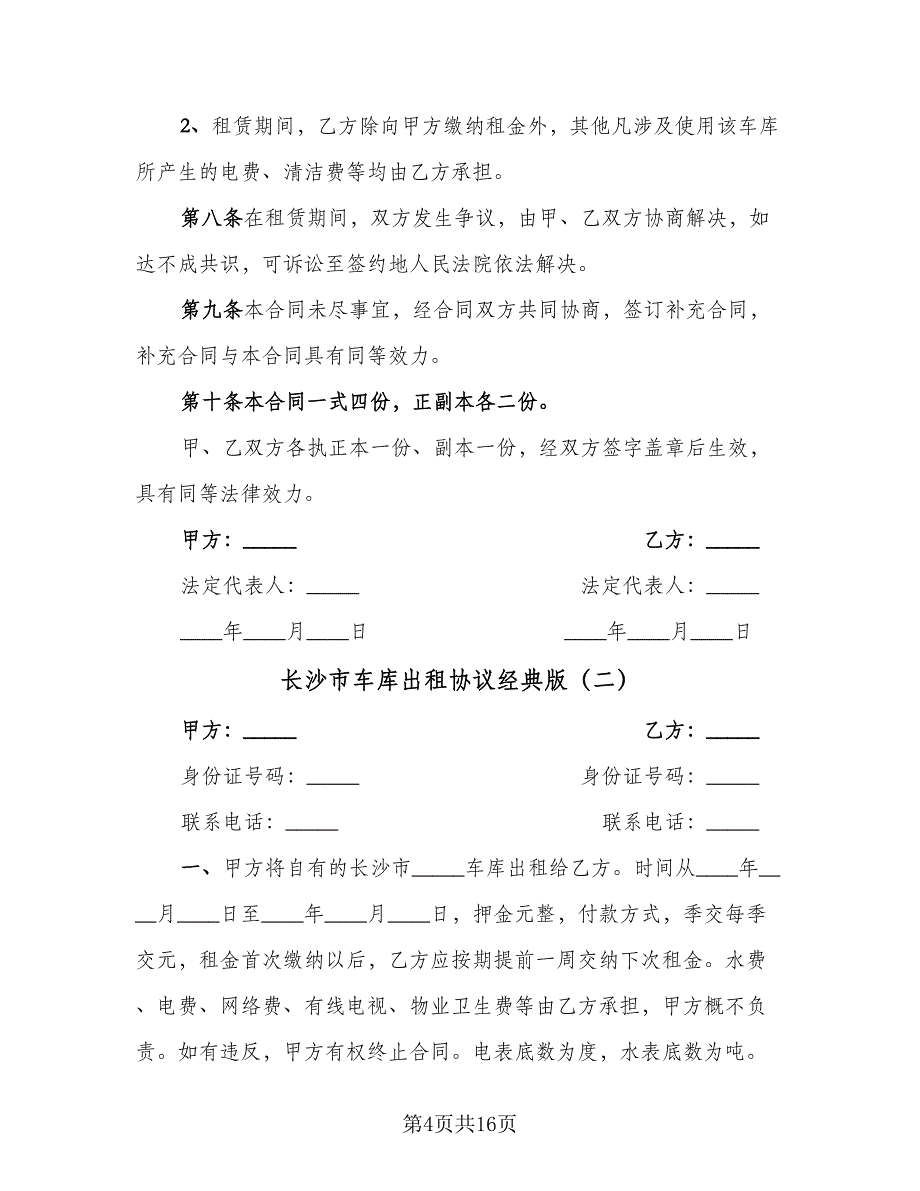 2、租赁期间，乙方除向甲方缴纳租金外，其他凡涉及使用该车库
所产生的电费、清洁费等均由乙方承担。
第八条在租赁期间，双方发生争议，由甲、乙双方协商解决，如
达不成共识，可诉讼至签约地人民法院依法解决。
第九条本合同未尽事宜，经合同双方共同协商，签订补充合同，
补充合同与本合同具有同等效力。
第十条本合同一式四份，正副本各二份。
甲、乙双方各执正本一份、副本一份，经双方签字盖章后生效，
具有同等法律效力。
甲方：_____ 乙方：_____
法定代表人：_____ 法定代表人：_____
____年____月____日 ____年____月____日
长沙市车库出租协议经典版（二）
甲方：_____ 乙方：_____
身份证号码：_____ 身份证号码：_____
联系电话：_____ 联系电话：_____
一、甲方将自有的长沙市_____车库出租给乙方。时间从____年__
__月____日至____年____月____日，押金元整，付款方式，季交每季
交元，租金首次缴纳以后，乙方应按期提前一周交纳下次租金。水费
、电费、网络费、有线电视、物业卫生费等由乙方承担，甲方概不负
责。如有违反，甲方有权终止合同。电表底数为度，水表底数为吨。
第4页共16页